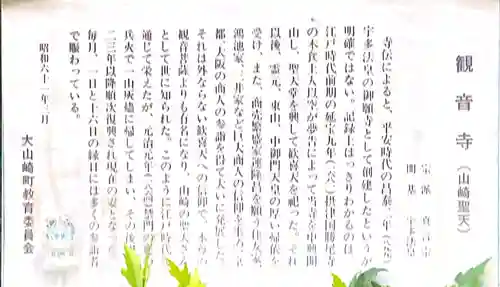 観音寺(山崎聖天)
宗派 真言宗
開基 宇多法皇
寺伝によると、平安時代の昌泰二年(八九九)
宇多法皇の御願寺として創建したというが
明確ではない。記録上はっきりわかるのは、
江戸時代前期の延宝九年(一六八一)摂津国勝尾寺
の木食上人以空が夢告によって当寺を中興開
山し、聖天堂を興して歓喜天を祀った。それ
以後、霊元、東山、中御門天皇の厚い帰依を
受け、また、商売繁盛家運隆昌を願う住友家、
鴻池家、三井家など巨大商人の信仰を
都、大阪の商人の参詣を得て大いに発展した。
それは外ならない歓喜天への信仰で、本尊の
観音菩薩よりも有名になり、山崎の聖天さん
として世に知られた。このように江戸時代を
通じて栄えたが、元治元年(一八六四)禁門の変の
兵火で一山灰燼に帰してしまい、その後明治
二三年以降順次復興され現在の姿となった。
毎月、一日と十六日の縁日には多くの参詣者
で賑わっている。
昭和六十一年三月
大山崎町教育委員会